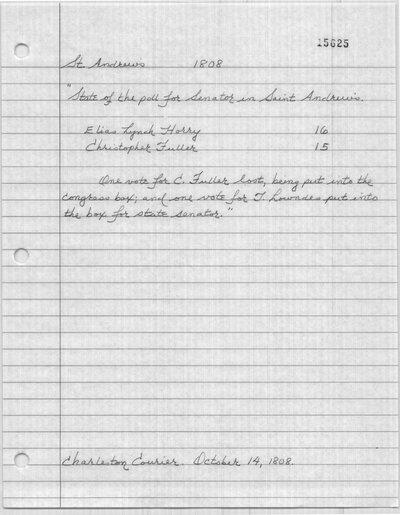 15625
St Andrews 1808
"State of the poll for Senator in Saint Andrew's.
Elias Lynch Horry 16
Christopher Fuller 15
One vote for C. Fuller lost, being put into the
congress box; and one vote for T. Lowndes put into
the box for state senator."
Charleston Courier. October 14, 1808.